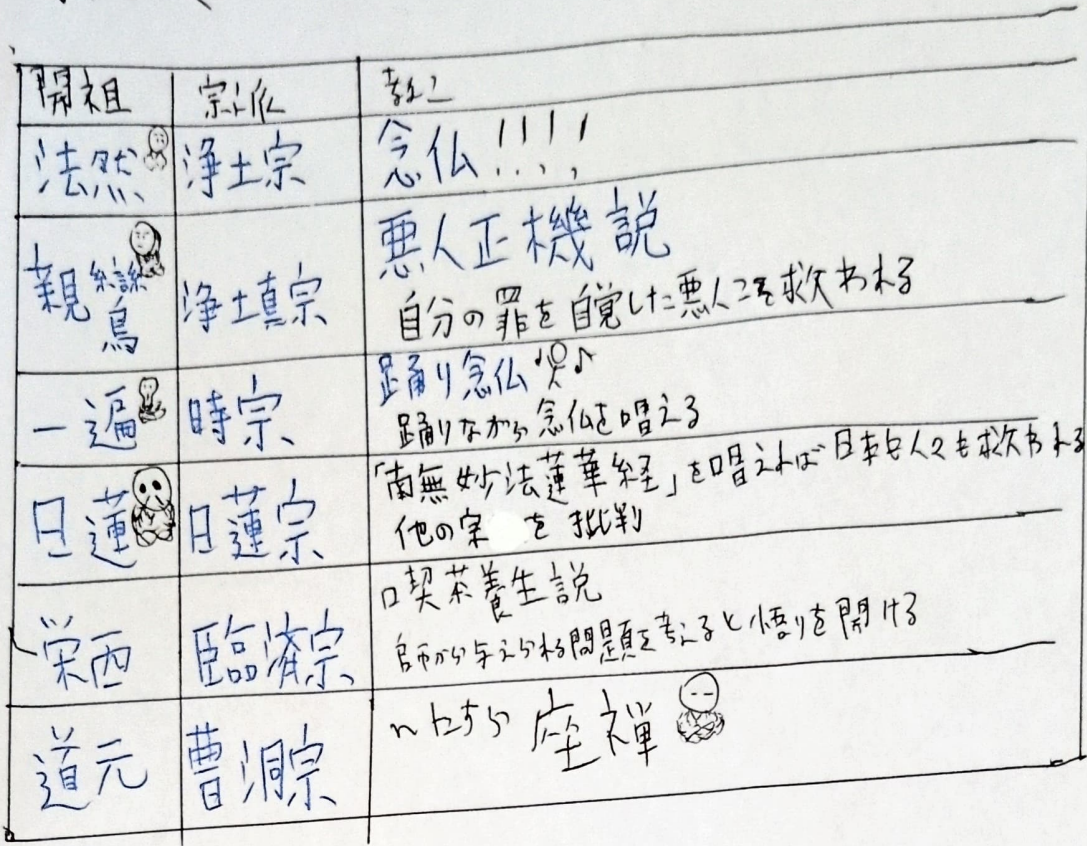 開祖 宗派 教え
法然 浄土宗 念仏!!!!
親鸞 浄土真宗 悪人正機説
自分の罪を自覚した悪人こそ救われる
一遍 時宗 踊り念仏♪
踊りながら念仏を唱える
日蓮 日蓮宗 「南無妙法蓮華経」を唱えれば日本も人々も救われる
他の宗 を批判
栄西 臨済宗 喫茶養生説
師から与えられる問題を考えると悟りを開ける
道元 曹洞宗 ひたすら 座禅